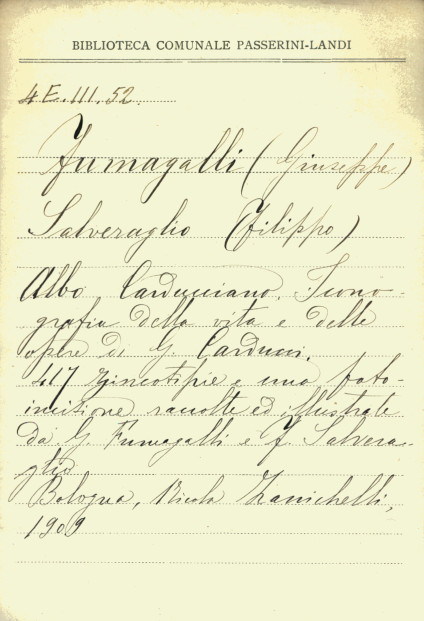 BIBLIOTECA COMUNALE PASSERINI-LANDI
4 E. III. 52.
Fumagalli (Giuseppe)
Salveraglio (Filippo)
Albo Carducciano. Icono-
grafia della vita e delle
opere di G. Carducci.
417 zincotipie e una foto-
incisione raccolte ed illustrate
da G. Fumagalli e F. Salvera-
glio
Bologna, Nicola Zanichelli,
1909